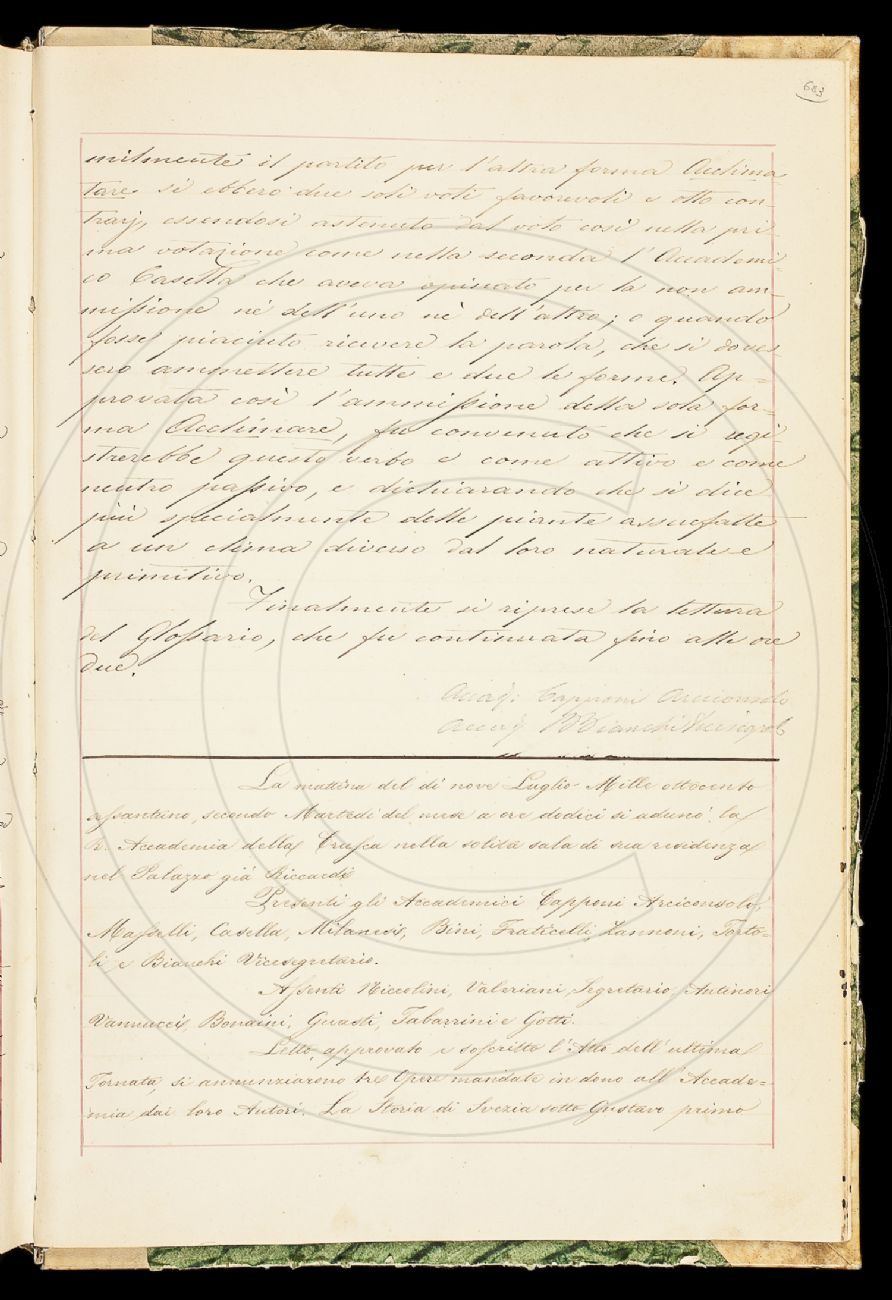 683
milmente il partito per l'altra forma Acclima-
tare si ebbero due soli voti favorevoli e otto con-
trarj, essendosi astenuto dal voto così nella pri-
ma votazione come nella seconda l'Accademi-
co Casella che aveva opinato per la non am-
missione nè dell'uno nè dell'altro; o quando
fosse piaciuto ricevere la parola, che si doves-
sero ammettere tutte e due le forme. Ap-
provata così l'ammissione della sola for-
ma Acclimare, fu convenuto che si regi-
strerebbe questo verbo e come attivo e come
neutro passivo, e dichiarando che si dice
più specialmente delle piante assuefatte
a un clima diverso dal loro naturale e
primitivo.
Finalmente si riprese la lettura
del Glossario, che fu continuata fino alle ore
due.
Capponi Arciconsolo
Bianchi Vicesegret.
La mattina del dì nove Luglio Mille ottocento
sessantuno, secondo Martedì del mese a ore dodici si adunò la
R. Accademia della Crusca nella solita sala di sua residenza
nel Palazzo già Riccardi.
Presenti gli Accademici Capponi Arciconsolo,
Masselli, Casella, Milanesi, Bini, Fraticelli, Zannoni, Torto-
li, e Bianchi Vicesegretario.
Assenti Niccolini, Valeriani, Segretario, Antinori
Vannucci, Bonaini, Guasti, Tabarrini e Gotti.
Letto, approvato e soscritto l'Atto dell'ultima
Tornata, si annunziarono tre Opere mandate in dono all'Accade-
mia dai loro Autori. La Storia di Svezia sotto Gustavo primo